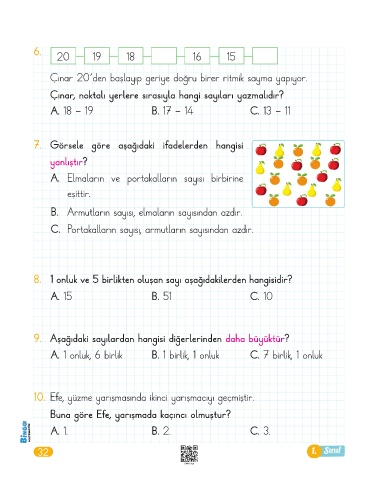 6. 20 19 18 16 15
Çınar 20'den başlayıp geriye doğru birer ritmik sayma yapıyor.
Çınar, noktalı yerlere sırasıyla hangi sayıları yazmalıdır?
A. 18 – 19 B. 17 – 14 C. 13 – 11
7. Görsele göre aşağıdaki ifadelerden hangisi
yanlıştır?
A. Elmaların ve portakalların sayısı birbirine
eşittir.
B. Armutların sayısı, elmaların sayısından azdır.
C. Portakalların sayısı, armutların sayısından azdır.
8. 1 onluk ve 5 birlikten oluşan sayı aşağıdakilerden hangisidir?
A. 15 B. 51 C. 10
9. Aşağıdaki sayılardan hangisi diğerlerinden daha büyüktür?
A. 1 onluk, 6 birlik B. 1 birlik, 1 onluk C. 7 birlik, 1 onluk
10. Efe, yüzme yarışmasında ikinci yarışmacıyı geçmiştir.
Buna göre Efe, yarışmada kaçıncı olmuştur?
A. 1. B. 2. C. 3.
32
1. Sınıf